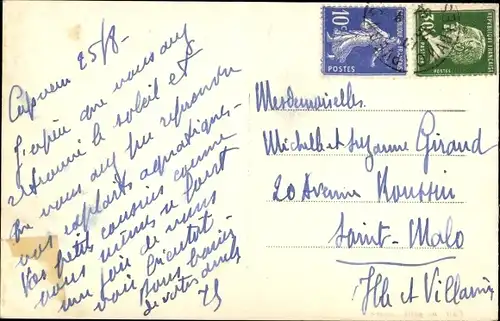 Capvern 25/8-
J'espère que vous avez
retrouvé le soleil et
que vous avez pu reprendre
vos exploits aquatiques-
Vos petits cousins comme
nous mêmes se font
une joie de vous
voir bientôt-
Bons baisers
de votre
10c
POSTES
30c
POSTES
Mesdemoiselles
Michelle et Suzanne Giraud
20 Avenue Moussin
Saint-Malo
Ille et Villaine